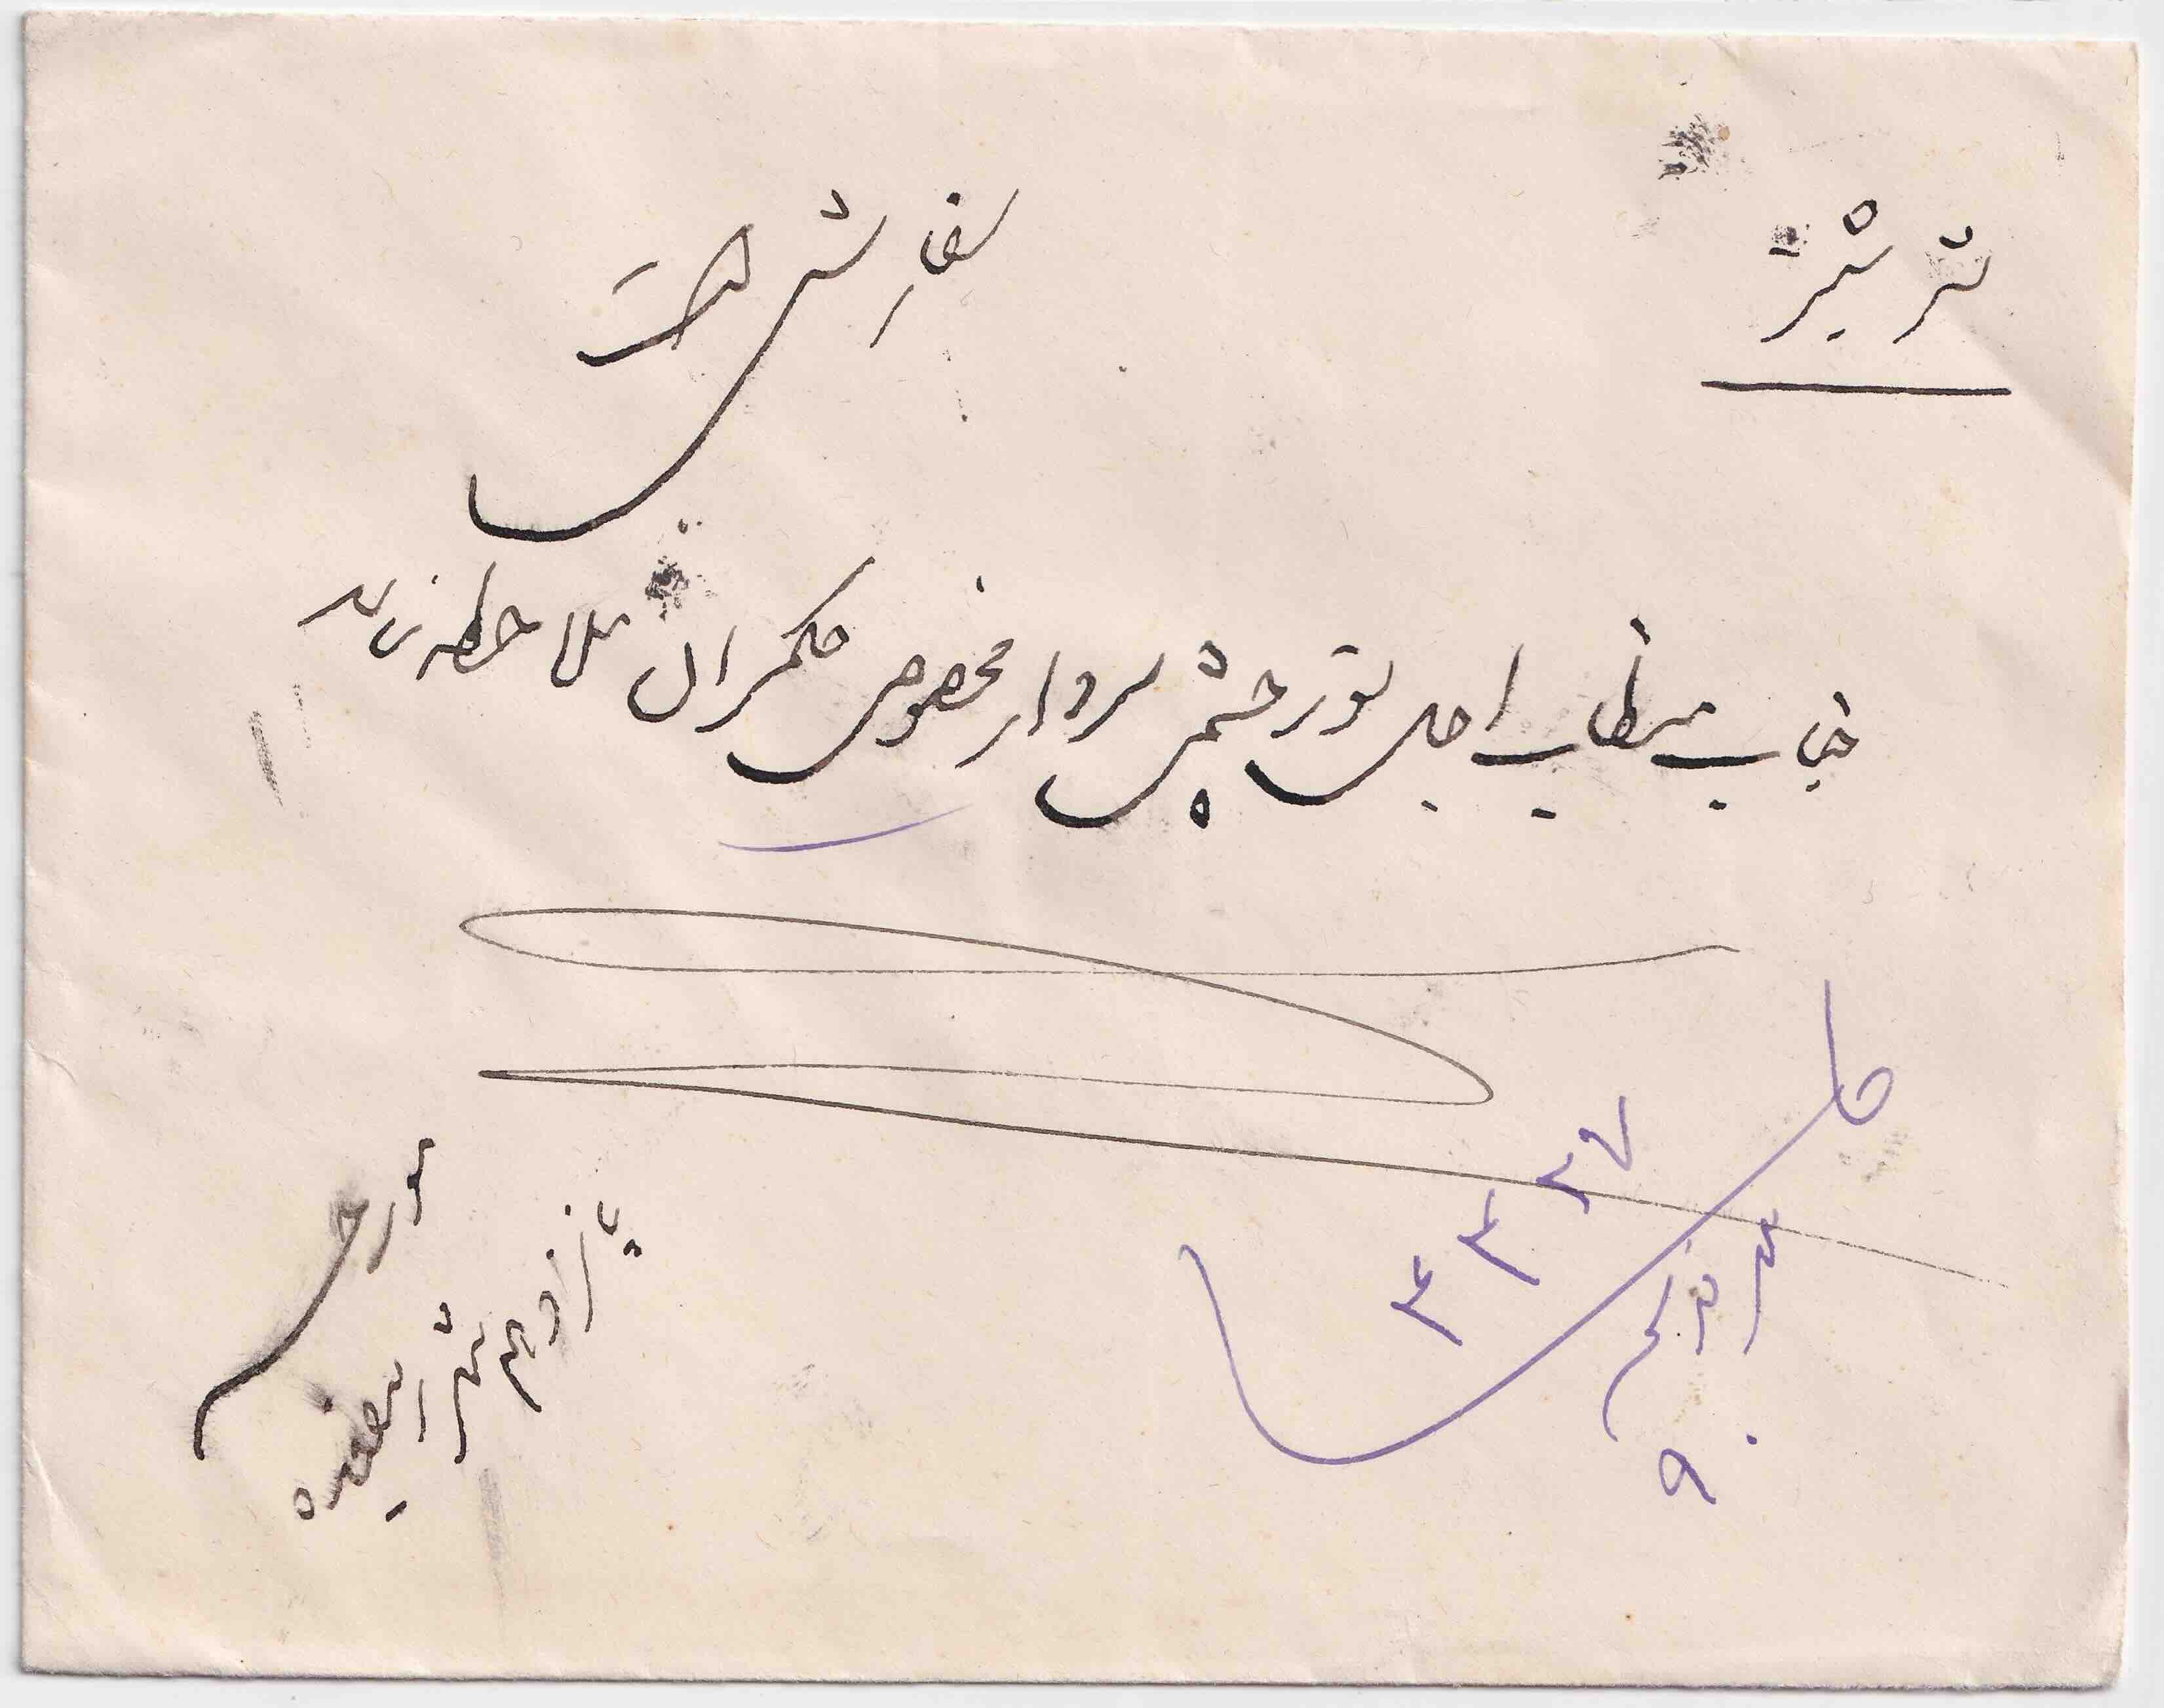 ترشیز
سفارشی است
جناب مستطاب اجل نورچشمی سردار مخصوص حکمران ملاحظه نمایند
مورخه
پانزدهم شهر ذیقعده
۳۳۲۷
۹